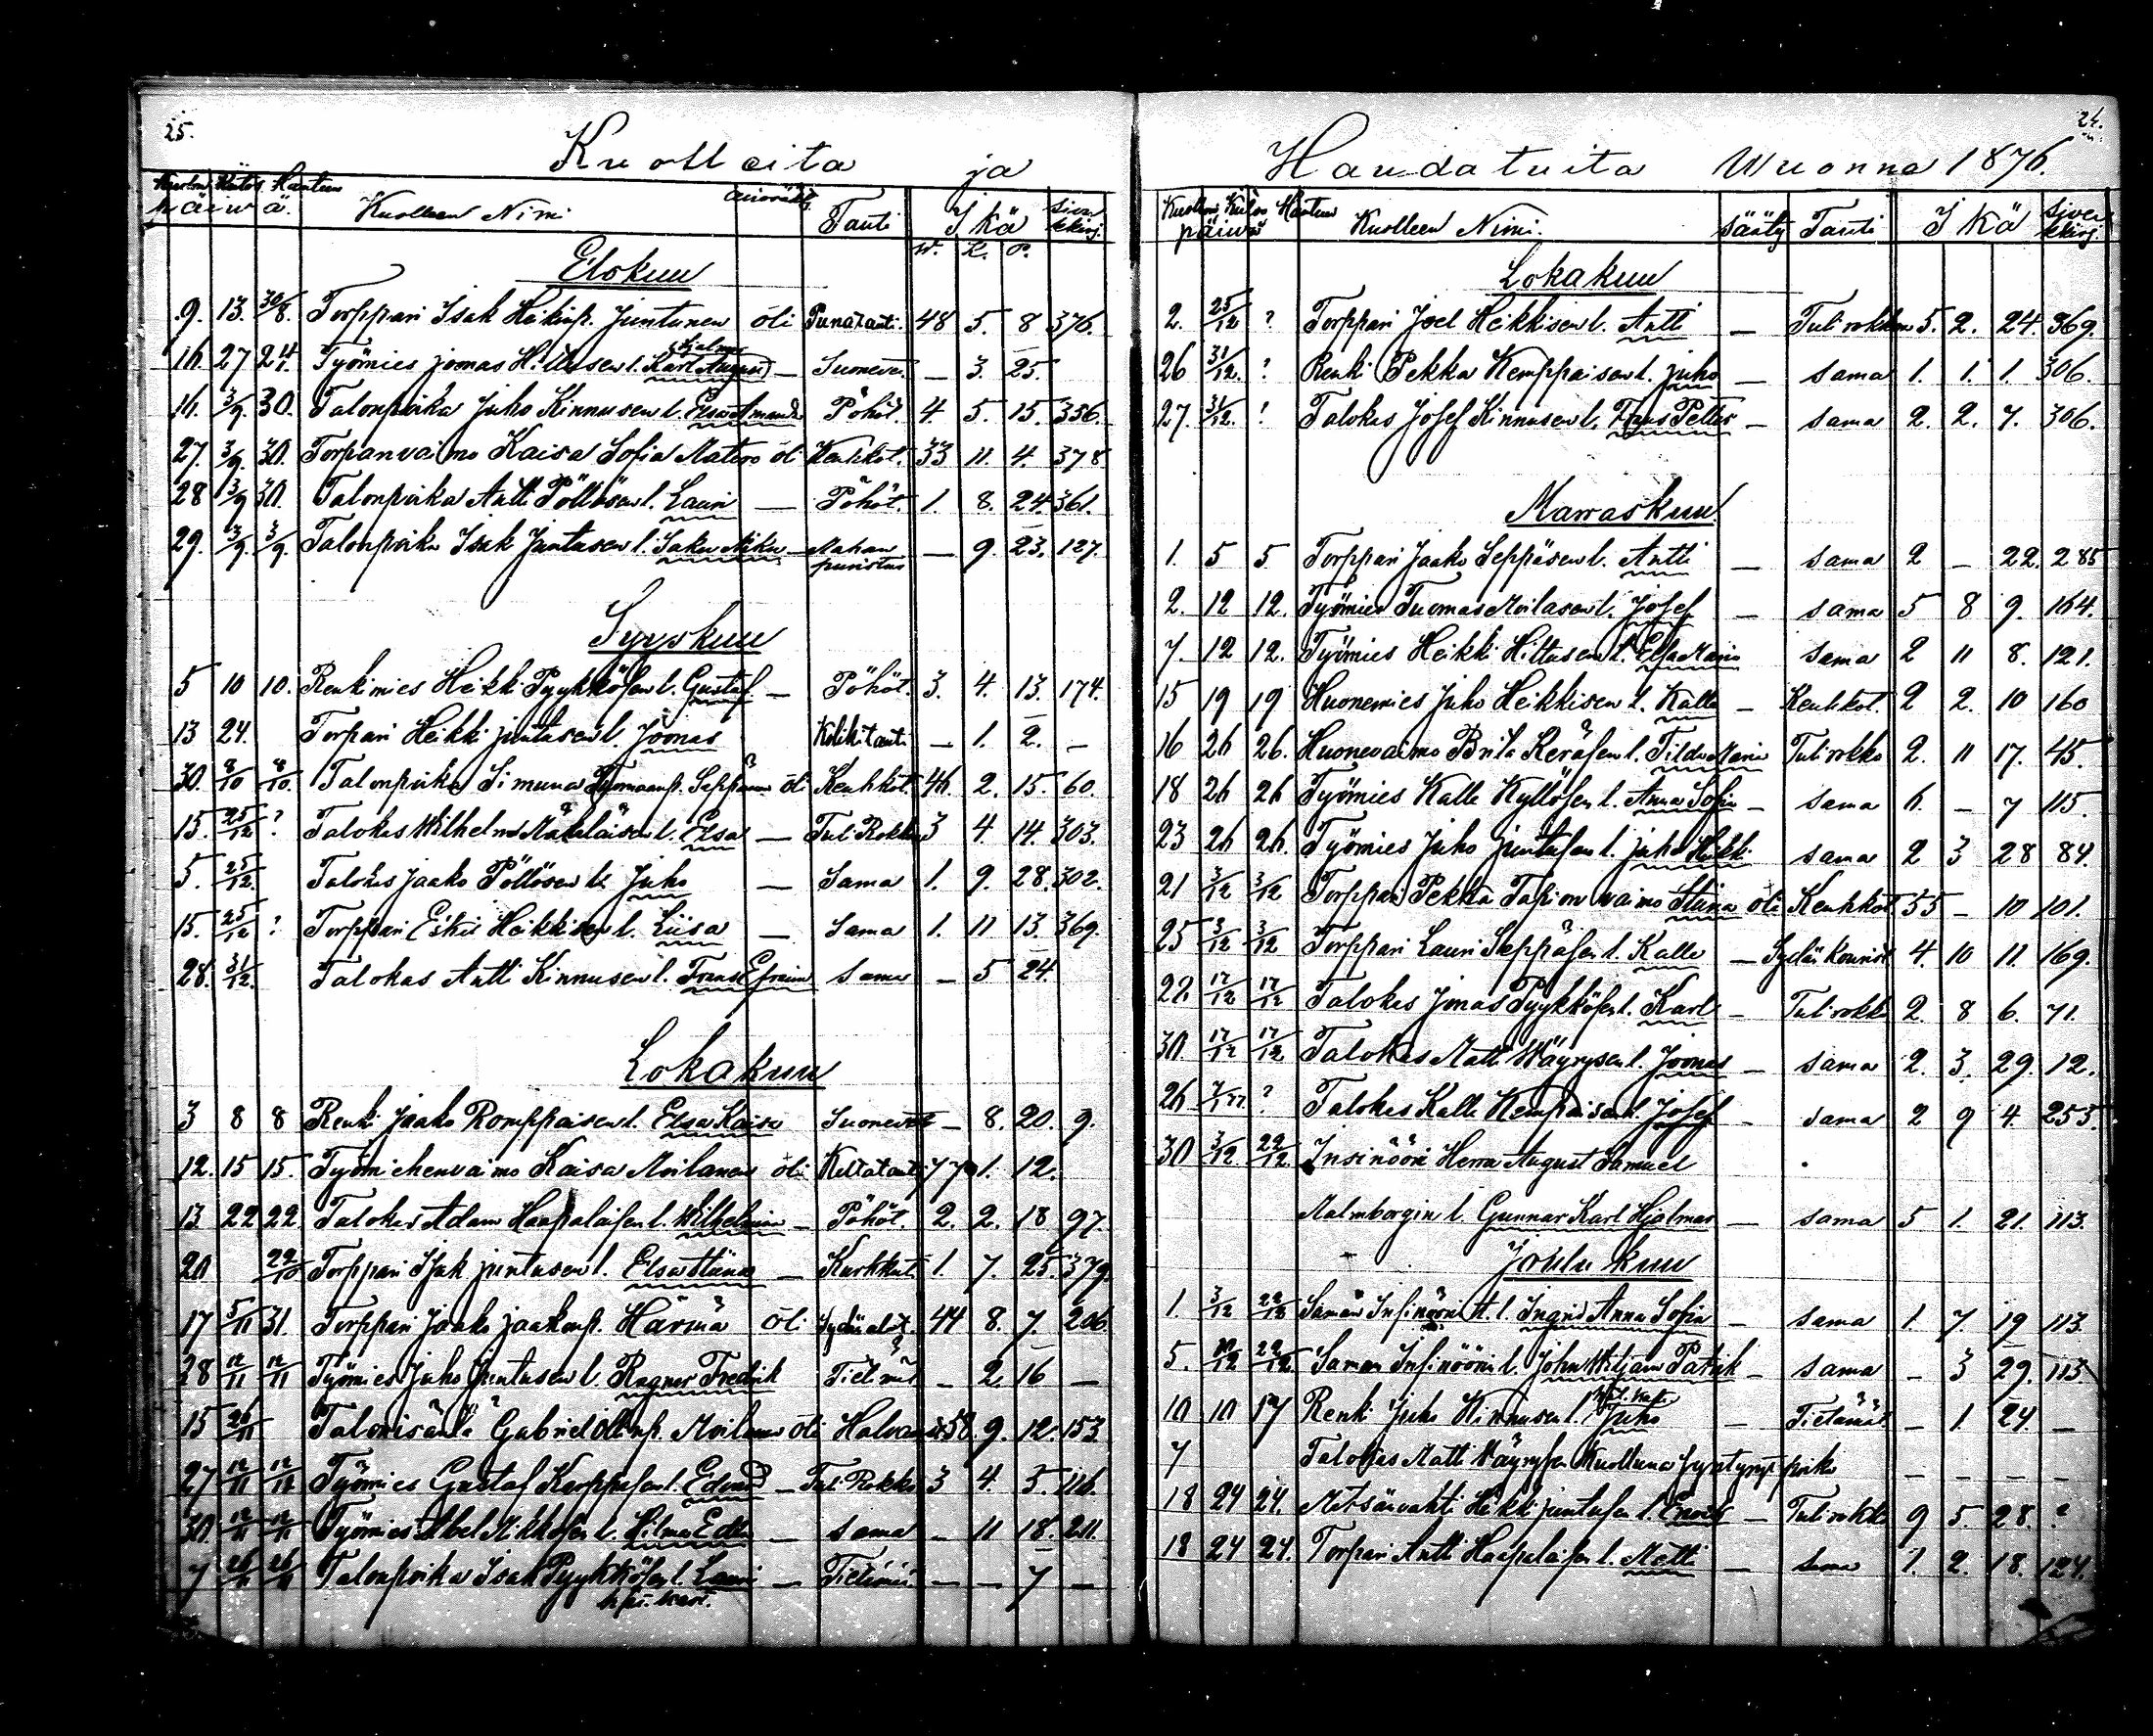 25.
Kuolleita ja
päiwä. Kuolleen Nimi Tauti Ikä
W. K. P.
Elokuu
9. 13. 30/8. Torppari Isak Heikinp. Juntunen oli Punatauti. 48 5. 8 376.
Hjalmar
16. 27 24. Työmies Joonas Hiltusen l. Karl August — Suonev. — 3. 25.
16. 3/9. 30. Talonpoika Juho Kinnusen l. Elsa Amanda Pöhöt. 4. 5. 15. 356.
27. 3/9. 30. Torpanvaimo Kaisa Sofia Matero oli Keuhkot. 33 11. 4. 378
28 3/9 30. Talonpoika Antti Pöllösen l. Lauri — Pöhöt. 1. 8. 24. 361.
29. 3/9. 3/9. Talonpoika Isak Juntusen l. — Mahan — 9. 23. 127.
puristus
Syyskuu
5 10 10. Renkimies Heikki Pyykkösen l. Gustaf — Pöhöt. 3. 4. 13. 174.
13 24. Torpari Heikki Juntusen l. Joonas Kolikitauti — 1. 2. —
30. 8/10 8/10. Talonpoika Simuna Seppänen oli Keuhkot. 46. 2. 15. 60.
15. 25/12 ? Talokas Wilhelm Mäkeläisen l. Elsa — Tuli Rokko 3 4. 14. 303.
5. 25/12. Talokas Jaako Pöllösen l. Juho — Sama 1. 9. 28. 302.
15. 25/12 ? Torppari Eskil Heikkisen l. Liisa — Sama 1. 11 13. 369.
28. 31/12. Talokas Antti Kinnusen l. Frans Efraim Sama — 5 24.
Lokakuu
3 8 8 Renki Jaako Romppaisen l. Elsa Kaisa Suonevet — 8. 20. 9.
12. 15 15. Työmiehenvaimo Kaisa Moilanen oli Keltataut. 77 1. 12.
13 22 22. Talokas Adam Haapalaisen l. Wilhelmina — Pöhöt. 2. 2. 18 97.
20 22/10 Torppari Isak Juntusen l. Elsa Stiina — Kurkkut. 1. 7. 25. 379.
17 5/11 31. Torppari Jaako Jaakonp. Härmä oli 44 8. 7. 206.
28 12/11 12/11 Työmies Juho Juntusen l. Ragner Fredrik — 2. 16 —
15 26/11 Talonisäntä Gabriel Ollinp. Moilanen oli Halvaus 58. 9. 12. 153.
27 12/11 12/11 Työmies Gustaf Karppasen l. — Tuli Rokko 3 4. 5. 116.
30. 12/11 12/11 Työmies Abel Mikkosen l. Hilma Edla — Sama — 11 18. 211.
7 26/11 26/11 Talonpoika Isak Pyykkösen l. Lauri — — — 7 —
24.
Haudatuita Wuonna 1876.
päiwä Kuolleen Nimi. Sääty Tauti Ikä
Lokakuu
2. 25/12 ? Torppari Joel Heikkisen l. Antti — Tulirokko 5. 2. 24. 369.
26 31/12. ? Renki Pekka Kemppaisen l. Juho — Sama 1. 1. 1. 306.
27. 31/12. ! Talokas Josef Kinnusen l. Frans Petter — Sama 2. 2. 7. 306.
Marraskuu
1. 5 5. Torppari Jaako Seppäsen l. Antti — Sama 2 — 22. 285
2. 12 12. Työmies Tuomas Moilasen l. Josef — Sama 5 8 9. 164.
7. 12 12. Työmies Heikki Hiltusen l. Elsa Maria Sama 2 11 8. 121.
15 19 19 Huonemies Juho Heikkisen l. Kalle — Keuhkot. 2 2. 10 160
16 26 26. Huonevaimo Brita Keräsen l. Tilda Maria Tulirokko 2. 11 17. 45.
18 26 26 Työmies Kalle Kyllösen l. Anna Sofia — Sama 6. — 7 115.
23 26 26. Työmies Juho Juntusen l. Juho Heikki Sama 2 3 28 84.
21 3/12 3/12 Torppari Pekka Tapion vaimo Stiina oli Keuhkot 55 — 10 101.
25 3/12 3/12 Torppari Lauri Seppäsen l. Kalle — Sydän kourist. 4. 10 11. 169.
22. 17/12 17/12 Talokas Jonas Pyykkösen l. Karl — Tulirokko 2. 8 6. 71.
30. 17/12 17/12 Talokas Matti Wäyrysen l. Joonas — Sama 2. 3. 29. 12.
26 ? Talokas Kalle Kemppaisen l. Josef — Sama 2 9 4. 253.
30 3/12 22/12 Insinööri Herra August Samuel
Malmborgin l. Gunnar Karl Hjalmar — Sama 5 1. 21. 113.
Joulukuu
1. 3/12 22/12 Saman Insinöörin l. Ingrid Anna Sofia — Sama 1. 7. 19 113.
5. 10/12 22/12. Saman Insinöörin l. John William Patrik — Sama — 3 29. 113
10 10 17 Renki Juho Kinnusen l. Juho — Tietämät. — 1. 24. —
7 Talokas Matti Wäyrysen Kuolluna syntynyt poika — — — —
18 24 24. Metsävahti Heikki Juntusen l. Enok — Tulirokko 9 5. 28. ?
18 24 24. Torpari Antti Haapalaisen l. Matti — Sama 1. 2. 18. 124.